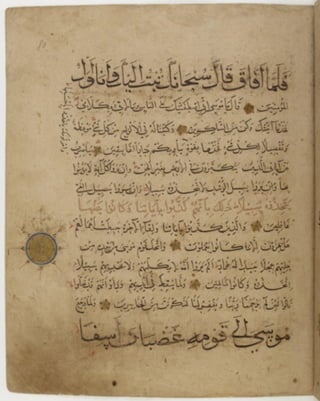 فلما أفاق قال سبحانك تبت إليك وأنا أول
المؤمنين قال يا موسى إني اصطفيتك على الناس برسالاتي وبكلامي
فخذ ما آتيتك وكن من الشاكرين وكتبنا له في الألواح من كل شيء موعظة
وتفصيلا لكل شيء فخذها بقوة سأريكم دار الفاسقين سأصرف
عن آياتي الذين يتكبرون في الأرض بغير الحق وإن يروا كل آية لا يؤمنوا
بها وإن يروا سبيل الرشد لا يتخذوه سبيلا وإن يروا سبيل الغي
يتخذوه سبيلا ذلك بأنهم كذبوا بآياتنا وكانوا عنها
غافلين والذين كذبوا بآياتنا ولقاء الآخرة حبطت أعمالهم هل
يجزون إلا ما كانوا يعملون واتخذ قوم موسى من بعده من
حليهم عجلا جسدا له خوار ألم يروا أنه لا يكلمهم ولا يهديهم سبيلا
اتخذوه وكانوا ظالمين ولما سقط في أيديهم ورأوا أنهم قد ضلوا
قالوا لئن لم يرحمنا ربنا ويغفر لنا لنكونن من الخاسرين ولما رجع
موسى إلى قومه غضبان أسفا